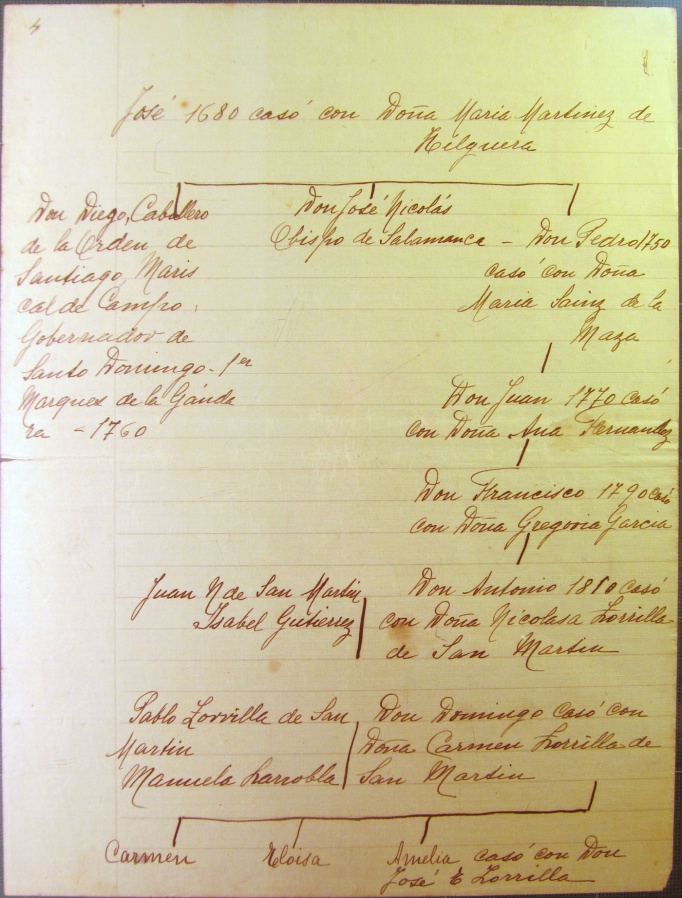 4
José 1680 casó con Doña Maria Martinez de
Helguera
Don Diego, Caballero
de la Orden de
Santiago, Maris
cal de Campo,
Gobernador de
Santo Domingo - 1er
Marques de la Gánda
ra - 1760
Don José Nicolás
Obispo de Salamanca - Don Pedro 1750
casó con Doña
Maria Sainz de la
Maza
Don Juan 1770 casó
con Doña Ana Fernandez
Don Francisco 1790 casó
con Doña Gregoria Garcia
Juan N de San Martin
Isabel Gutierrez
Don Antonio 1810 casó
con Doña Nicolasa Zorrilla
de San Martin
Pablo Zorrilla de San
Martin
Manuela Larrobla
Don Domingo casó con
Doña Carmen Zorrilla de
San Martin
Carmen Eloisa Amelia casó con Don
José E Zorrilla